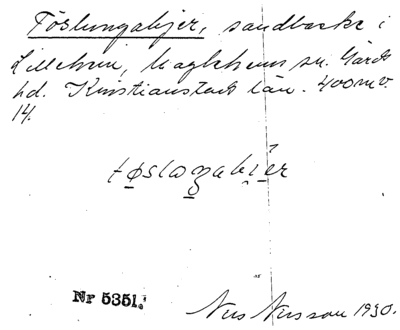 Föslungabjer, sandbacke i
Lillehem, Maglehems sn. Gärds
hd. Kristianstads län. 400 m v.
14.
Nr 5351.
Nils Nilsson 1930.